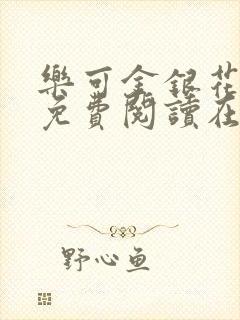 樂可金銀花
免費閱讀在
野心鱼